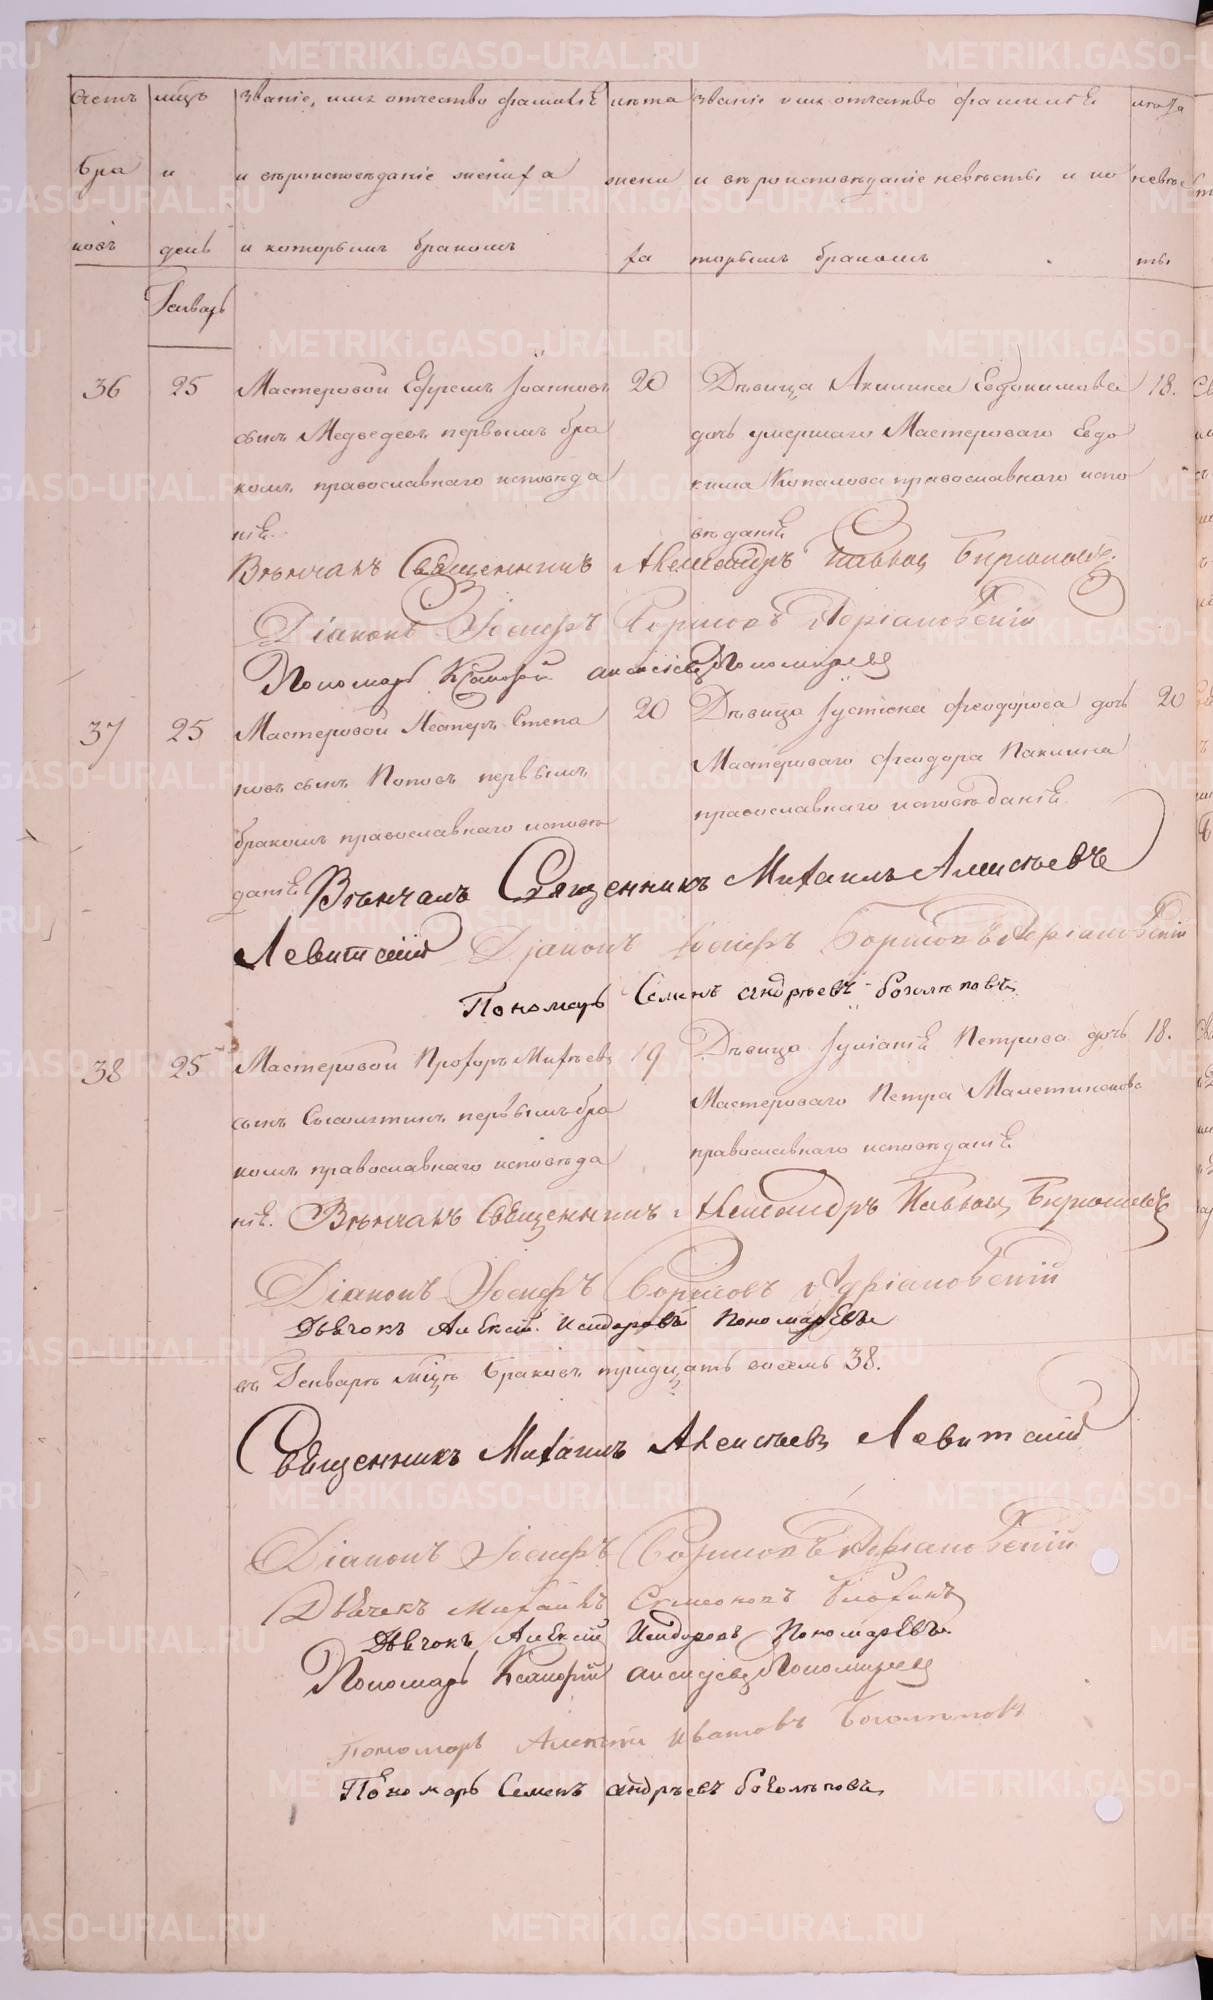 Счетъ мцъ Званіе, имя отчество фамилія лѣта Званіе имя отчество фамилія лѣта
бра и и вѣроисповѣданіе жениха жени и вѣроисповѣданіе невѣсты и ко невѣс
ковъ день и которымъ бракомъ ха торымъ бракомъ ты
Генварь
36 25 Мастеровой Ефремъ Іоанновъ 20 Дѣвица Акилина Евдокимова 18.
сынъ Медведевъ первымъ бра дочь умершаго Мастероваго Евдо
комъ православнаго исповѣда кима православнаго испо
нія. вѣданія
Вѣнчалъ Священникъ Александръ Павловъ Бирюковъ.
Діаконъ Іосифъ Борисовъ Адріановскій
Пономарь Пономаревъ
37 25 Мастеровой Несторъ Степа 20 Дѣвица Іустіна Феодорова дочь 20
новъ сынъ Поповъ первымъ Мастероваго Феодора Паклина
бракомъ православнаго исповѣ православнаго исповѣданія
данія Вѣнчалъ Священникъ Михаилъ Алексѣевъ
Левитскій Діаконъ Іосифъ Борисовъ Адріановскій
Пономарь Семенъ андрѣевъ боголѣповъ
38 25 Мастеровой Прохоръ Михѣевъ 19 Дѣвица Іуліанія Петрова дочь 18.
сынъ первымъ бра Мастероваго Петра
комъ православнаго исповѣда православнаго исповѣданія
нія. Вѣнчалъ Священникъ Александръ Павловъ Бирюковъ
Діаконъ Іосифъ Борисовъ Адріановскій
Дьячокъ Алексій Исидоровъ Пономаревъ
въ Генварѣ мцѣ браковъ тридцать восемь 38.
Священникъ Михаилъ Алексѣевъ Левитскій
Діаконъ Іосифъ Борисовъ Адріановскій
Дьячекъ Михаилъ Симеоновъ
Дьячокъ Алексій Исидоровъ Пономаревъ
Пономарь Пономаревъ
Пономарь Алексѣй Ивановъ Боголѣповъ
Пономарь Семенъ андрѣевъ боголѣповъ
METRIKI.GASO-URAL.RU